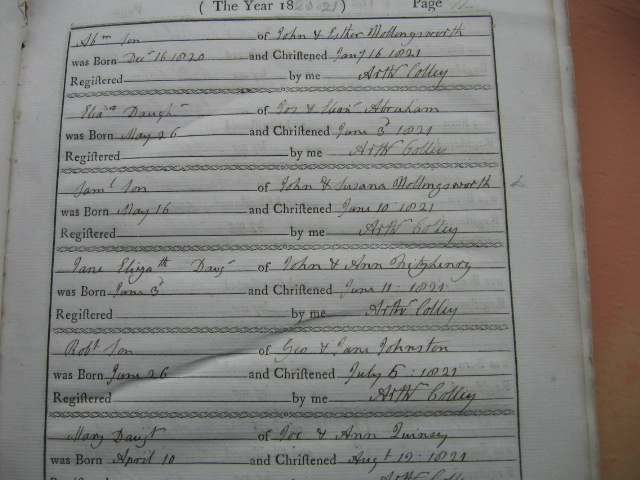 ( The Year 1820-21 ) Page 11
Abm Son of John & Esther Mollongsworth
was Born Decr 16 1820 and Chriſtened Jany 16 1821
Regiſtered by me Arthr Colley
Elianr Daughtr of Jos & Elianr Abraham
was Born May 26 and Chriſtened June 3d 1821
Regiſtered by me Arthr Colley
Saml Son of John & Susana Mollongsworth
was Born May 16 and Chriſtened June 10 1821
Regiſtered by me Arthr Colley
Jane Elizath Daugr of John & Ann Fitzhenry
was Born June 3d and Chriſtened June 11: 1821
Regiſtered by me Arthr Colley
Robt Son of Geo & Jane Johnston
was Born June 26 and Chriſtened July 6: 1821
Regiſtered by me Arthr Colley
Mary Daugtr of Jos & Ann Quinsey
was Born April 10 and Chriſtened Augt 12: 1821
Regiſtered by me Arthr Colley